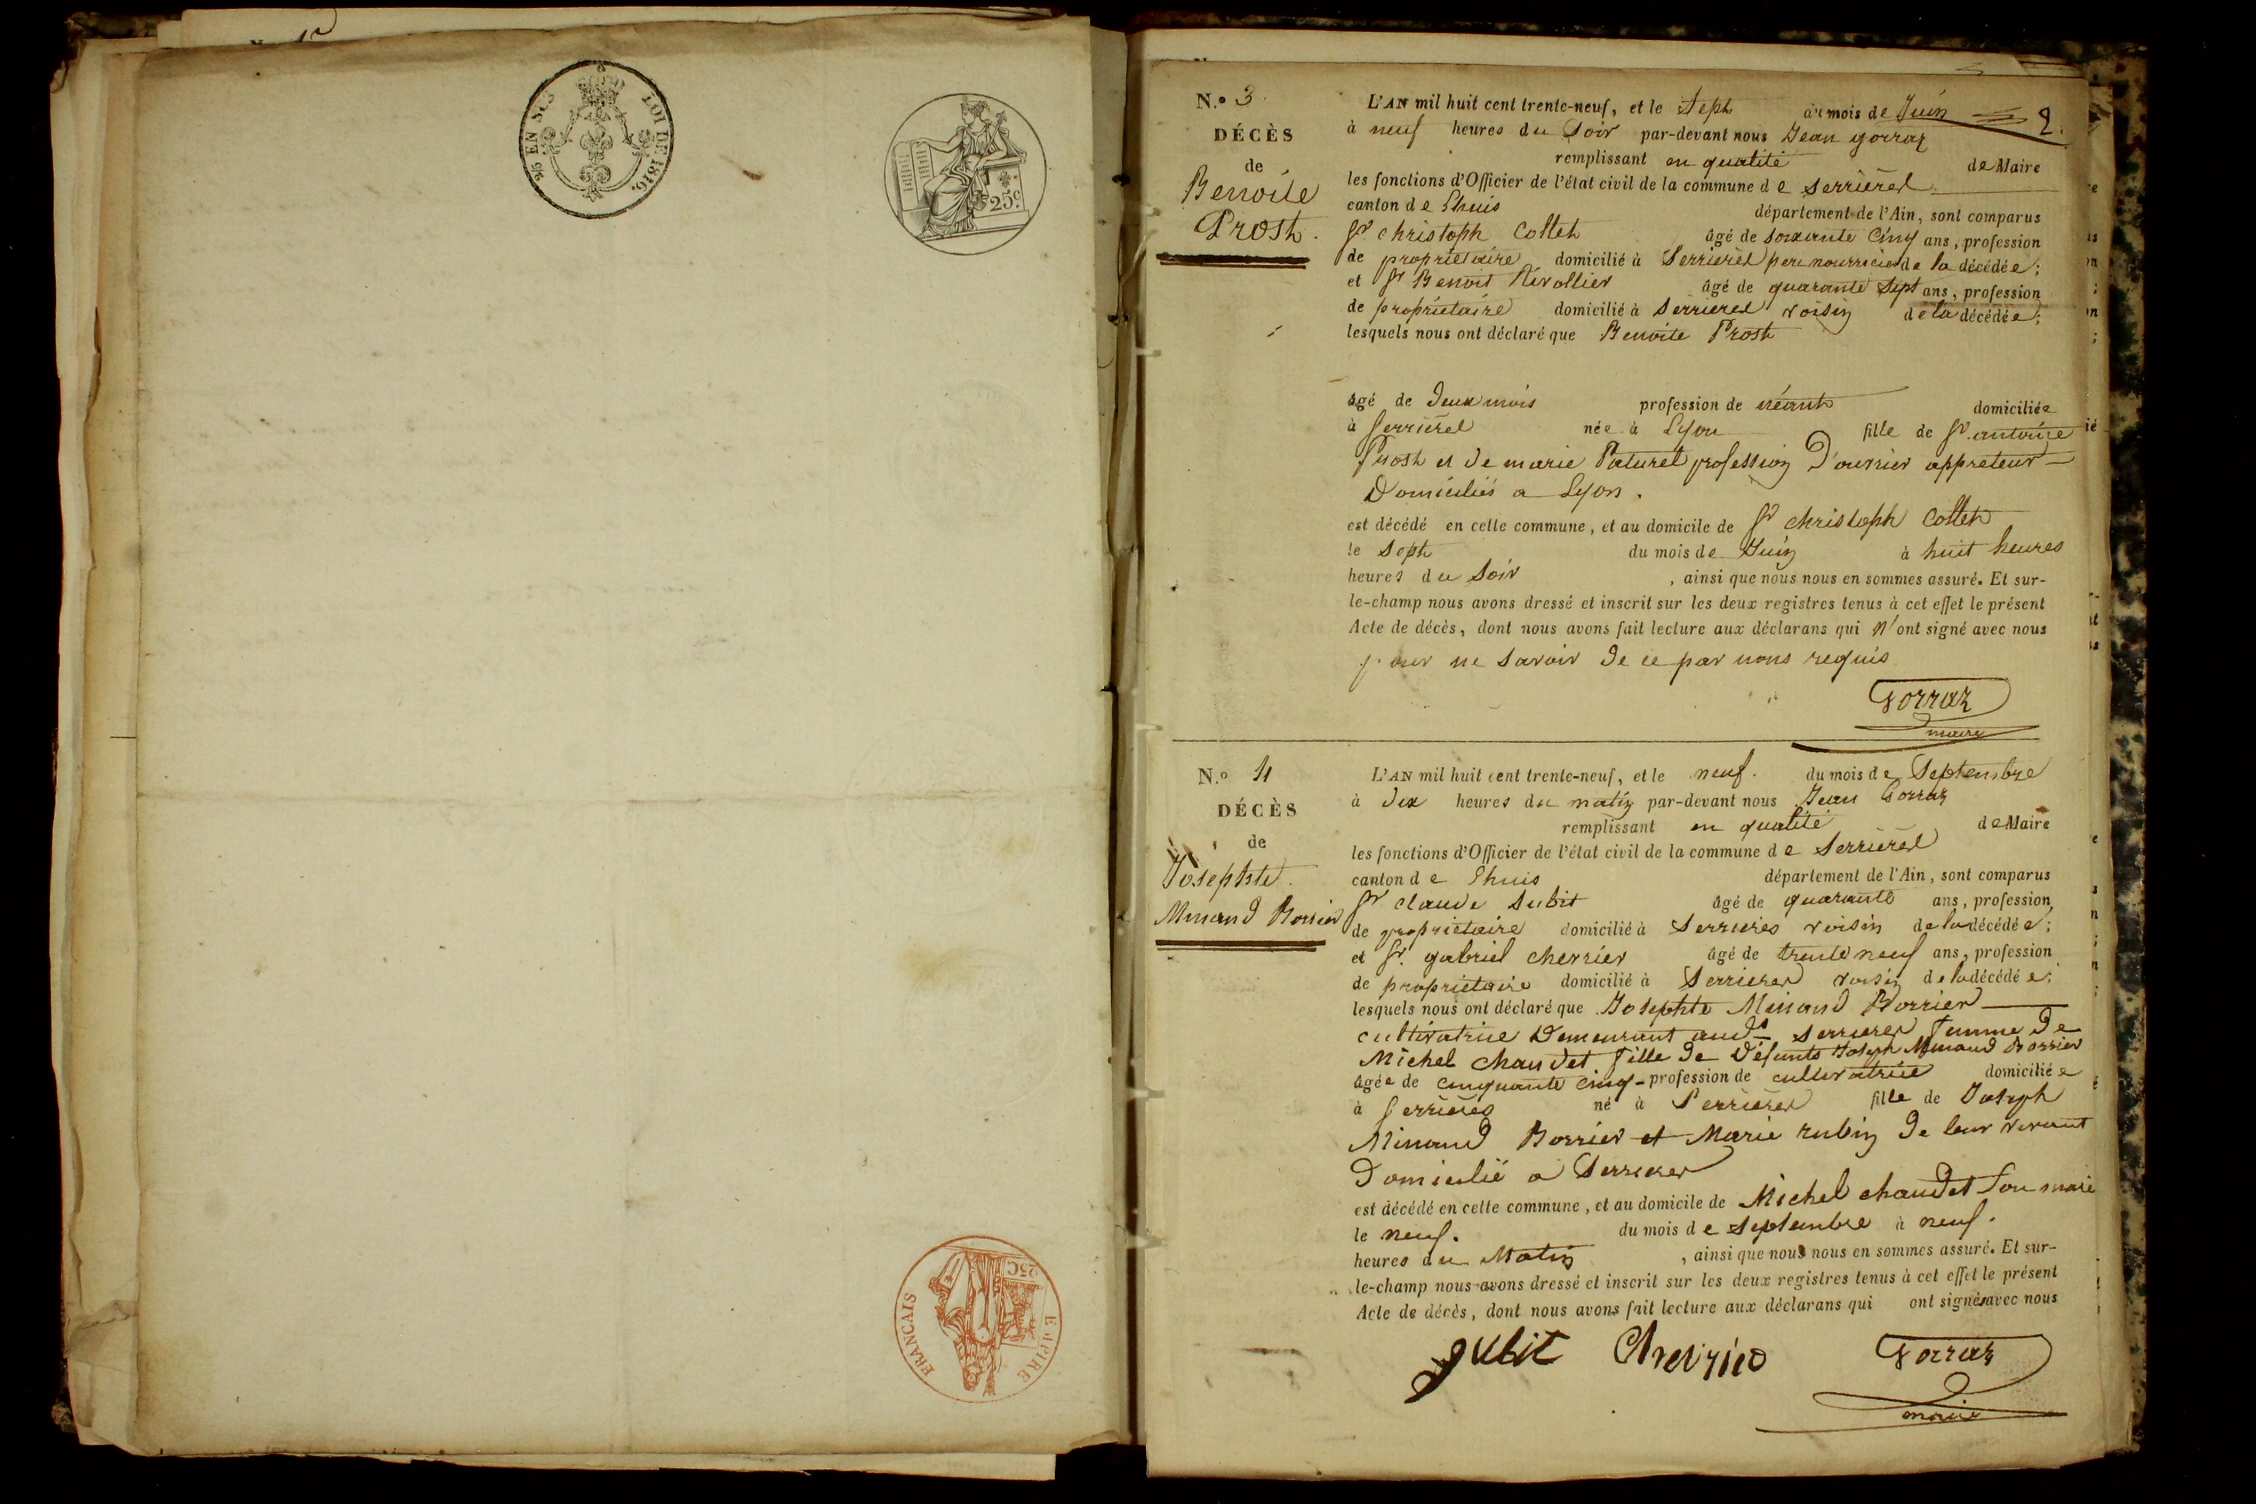 25 EN SUS
LOI DE 1816.
25c.
25C
EMPIRE
FRANCAIS
N.° 3
2.
DÉCÈS
de
Benoite
Prost.
L'AN mil huit cent trente-neuf, et le Sept du mois de Juin
à neuf heures du Soir par-devant nous Jean gorraz
remplissant en qualité de Maire
les fonctions d'Officier de l'état civil de la commune de Serrieres
canton de Lhuis département de l'Ain, sont comparus
Sr christoph Collet âgé de soixante Cinq ans, profession
de propriétaire domicilié à Serrieres pere nourricier de la décédée;
et Sr Benoit Révollier âgé de quarante Sept ans, profession
de propriétaire domicilié à Serrieres voisin de la décédée;
lesquels nous ont déclaré que Benoite Prost
âgé de deux mois profession de néant domiciliée
à Serrieres née à Lyon fille de Sr. antoine
Prost et de marie Paturel profession D'ouvrier appreteur
Domiciliés a Lyon.
est décédé en cette commune, et au domicile de Sr christoph Collet
le Sept du mois de Juin à huit heures
heures du Soir , ainsi que nous nous en sommes assuré. Et sur-
le-champ nous avons dressé et inscrit sur les deux registres tenus à cet effet le présent
Acte de décès, dont nous avons fait lecture aux déclarans qui n'ont signé avec nous
pour ne Savoir de ce par nous requis
Gorraz
maire
N.° 4
DÉCÈS
de
Josephte
Minand Borrier
L'AN mil huit cent trente-neuf, et le neuf. du mois de Septembre
à dix heures du matin par-devant nous Jean Gorraz
remplissant en qualité de Maire
les fonctions d'Officier de l'état civil de la commune de Serrieres
canton de Lhuis département de l'Ain, sont comparus
Sr claude Subit âgé de quarante ans, profession
de propriétaire domicilié à Serrieres voisin de la décédée;
et Sr. gabriel chevrier âgé de trente neuf ans, profession
de propriétaire domicilié à Serrieres voisin de la décédée;
lesquels nous ont déclaré que Josephte Minand Borrier
cultivatrice Demeurant aud. Serrieres femme de
Michel chaudet fille de défunts Joseph Minand Borrier
âgée de cinquante cinq profession de cultivatrice domiciliée
à Serrieres né à Serrieres fille de Joseph
Minand Borrier et Marie rubin de leur vivant
Domicilié a Serrieres
est décédé en cette commune, et au domicile de Michel chaudet Son mari
le neuf. du mois de Septembre à neuf.
heures du Matin , ainsi que nous nous en sommes assuré. Et sur-
le-champ nous avons dressé et inscrit sur les deux registres tenus à cet effet le présent
Acte de décès, dont nous avons fait lecture aux déclarans qui ont signés avec nous
Subit Chevrier Gorraz
maire